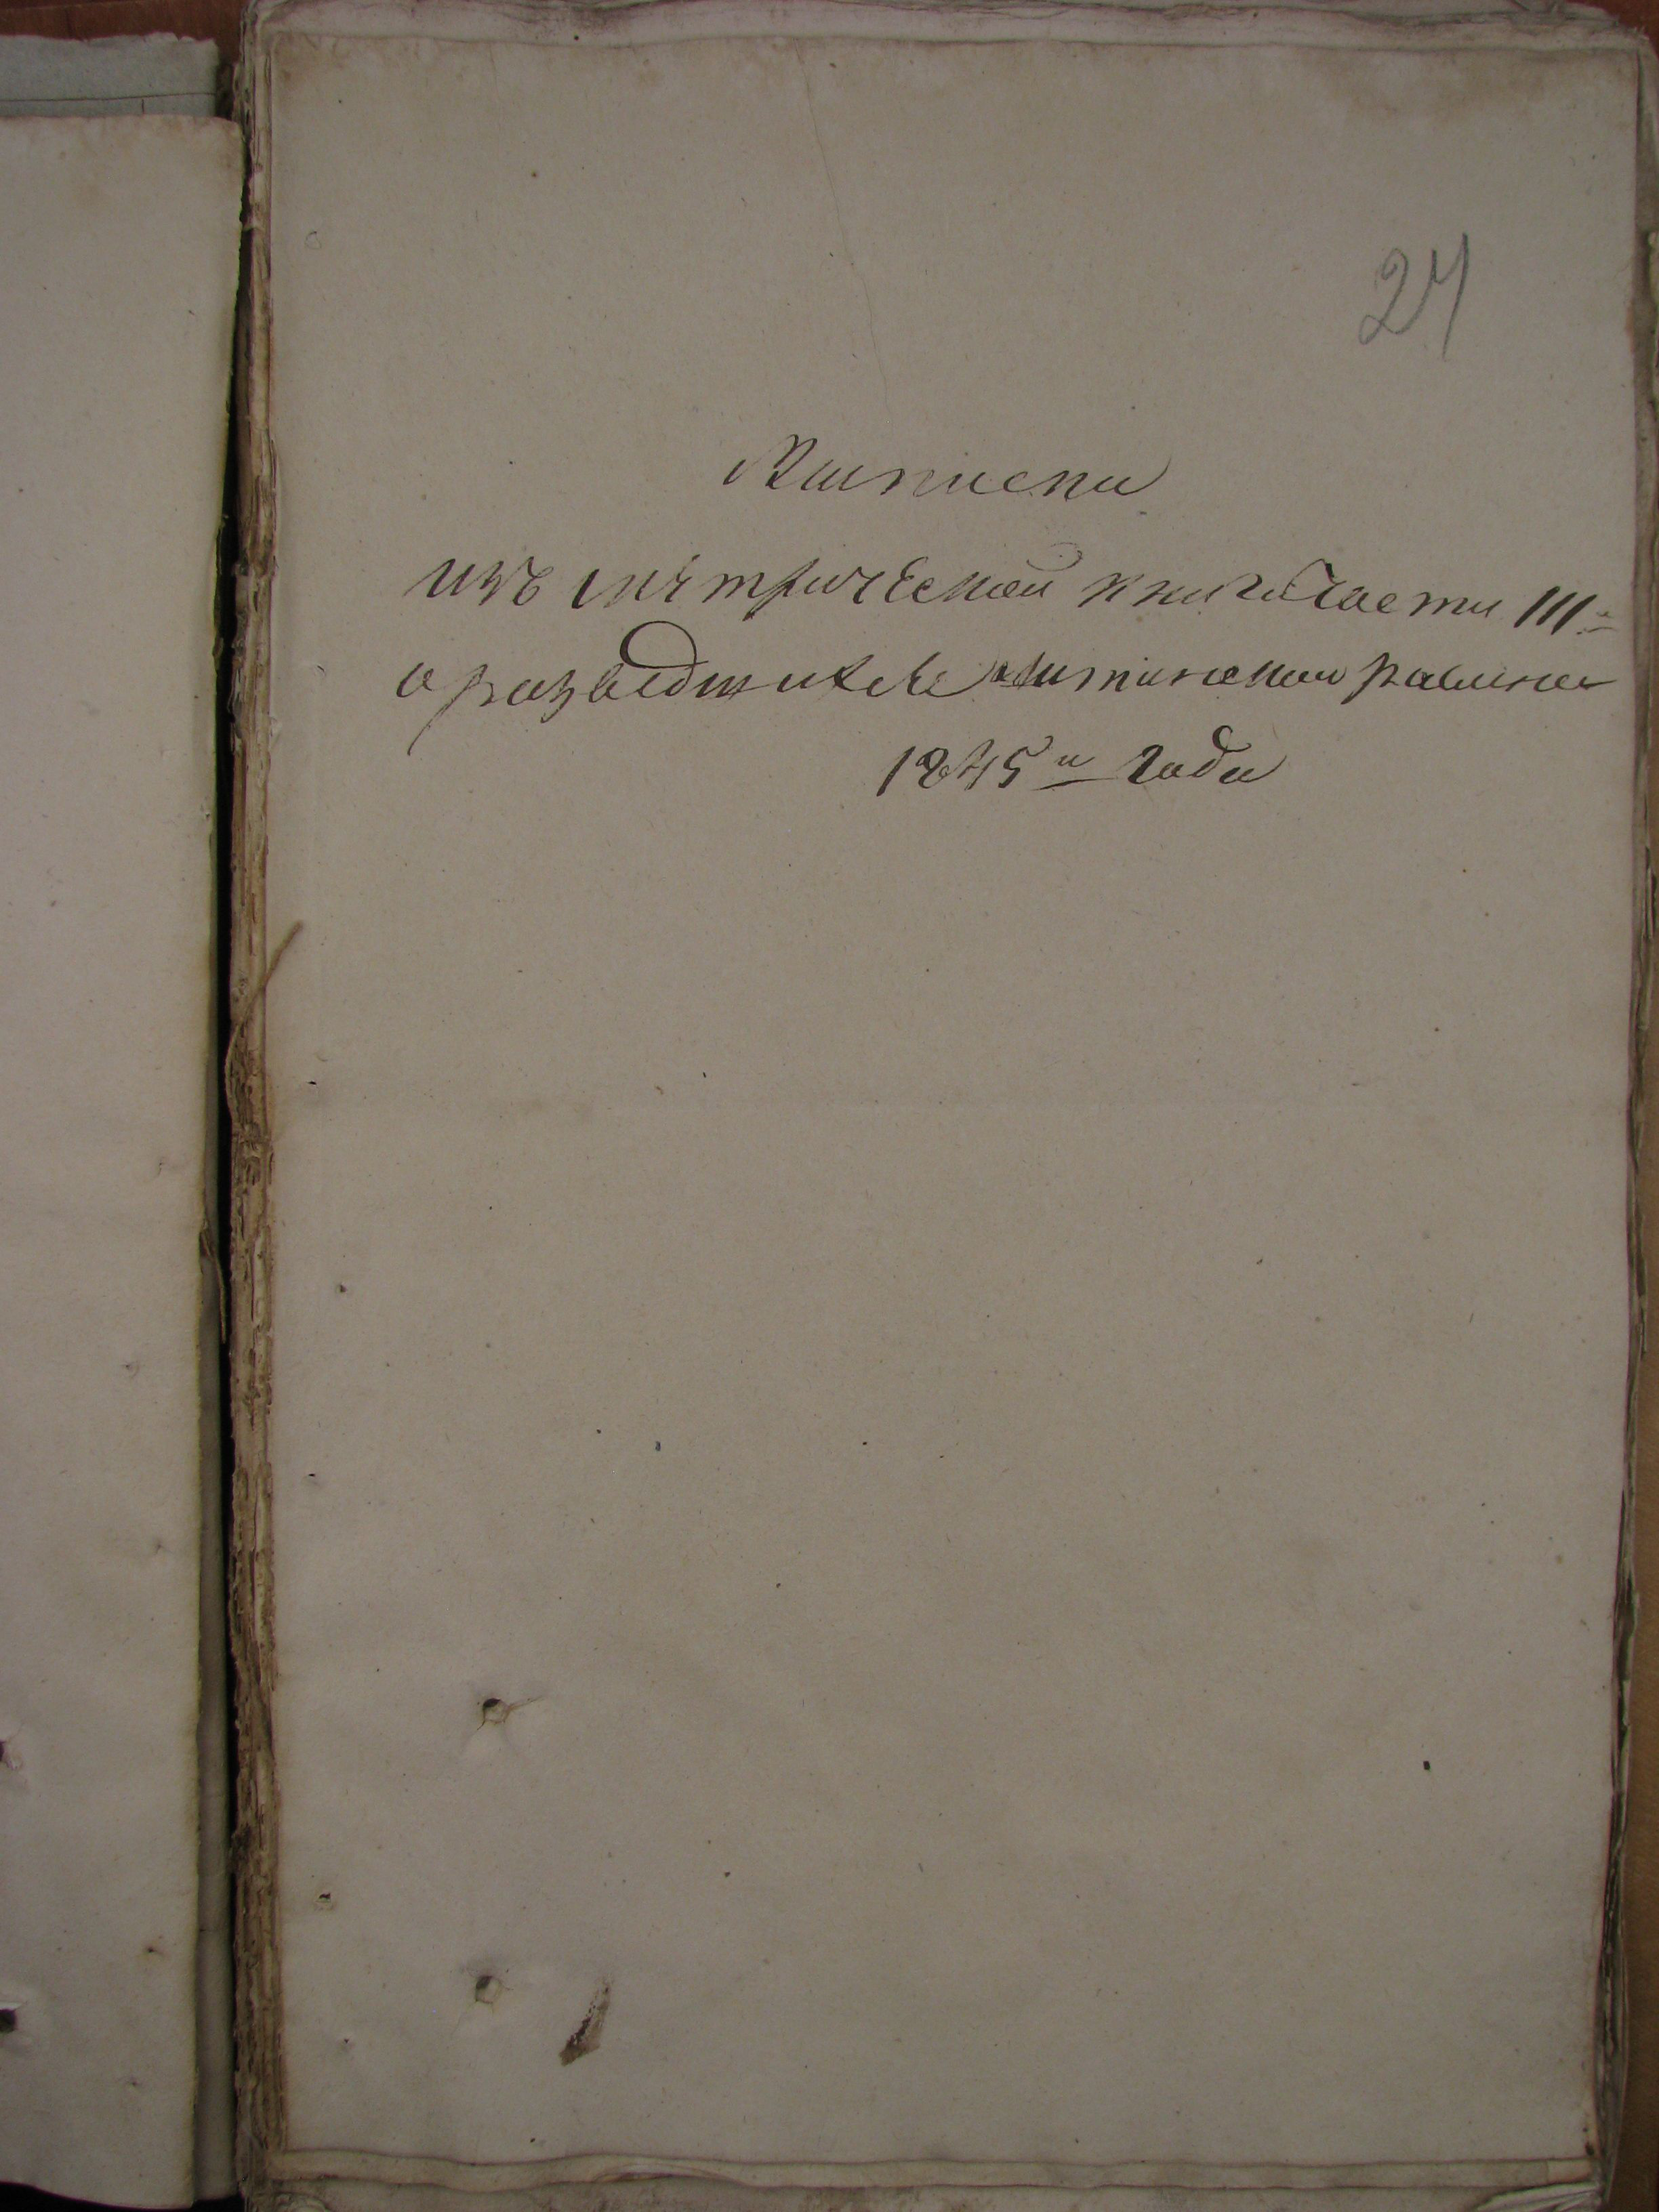 24
Выписки
изъ метрической книги Части III й
о разведшихся равина
1845 го года